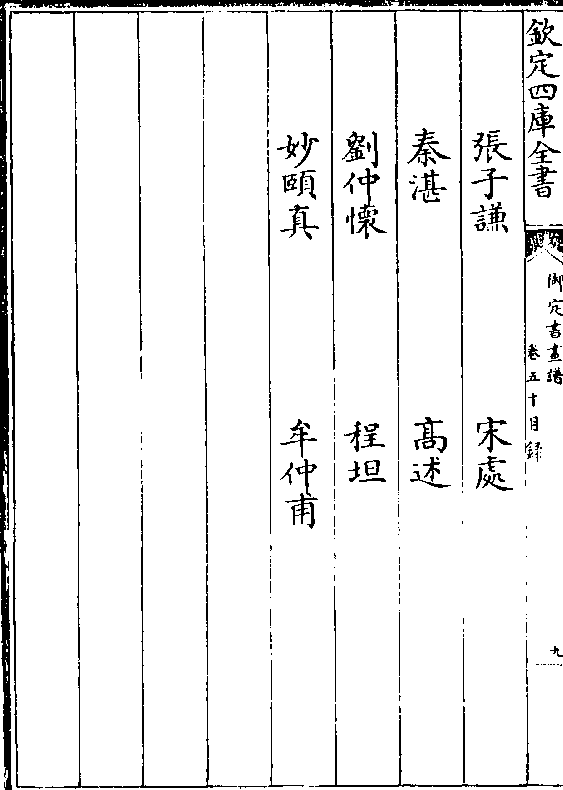 欽定四庫全書
御定書畫譜
卷五十目録
九
張子謙 宋處
秦湛 髙述
劉仲懷 程坦
妙頤真 牟仲甫